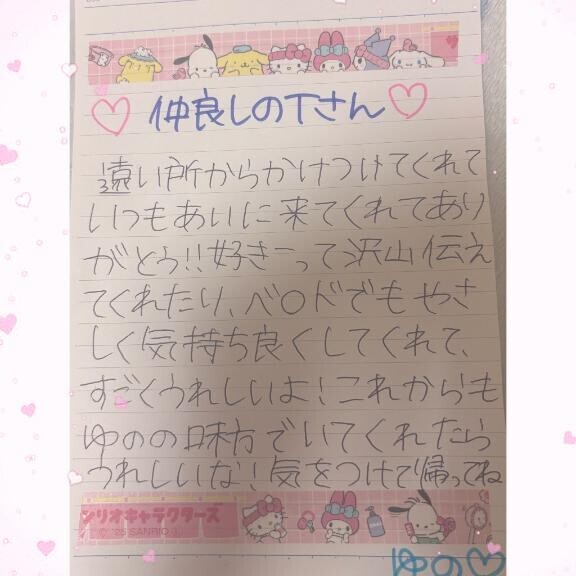 ♡ 仲良しの下さん ♡
遠い所からかけつけてくれて
いつもあいに来てくれてあり
がとう!!好きって沢山伝え
てくれたり、ベ○ドでもやさ
しく気持ち良くしてくれて、
すごくうれしいよ!これからも
ゆのの味方でいてくれたら
うれしいな!気をつけて帰ってね
ンリオキャラクターズ
© '25 SANRIO
ゆの♡